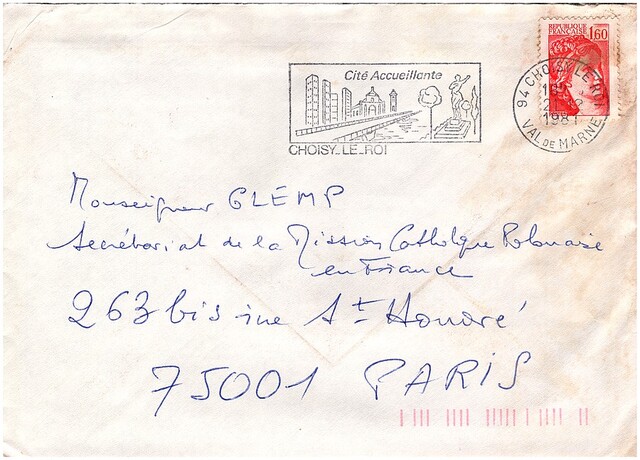 REPUBLIQUE FRANCAISE 1,60
Cité Accueillante
CHOISY_LE_ROI
94 CHOISY LE R
198
VAL DE MARNE
Monseigneur GLEMP
Secrétariat de la Mission Catholique Polonaise
en France
263 bis rue St Honoré
75001 PARIS